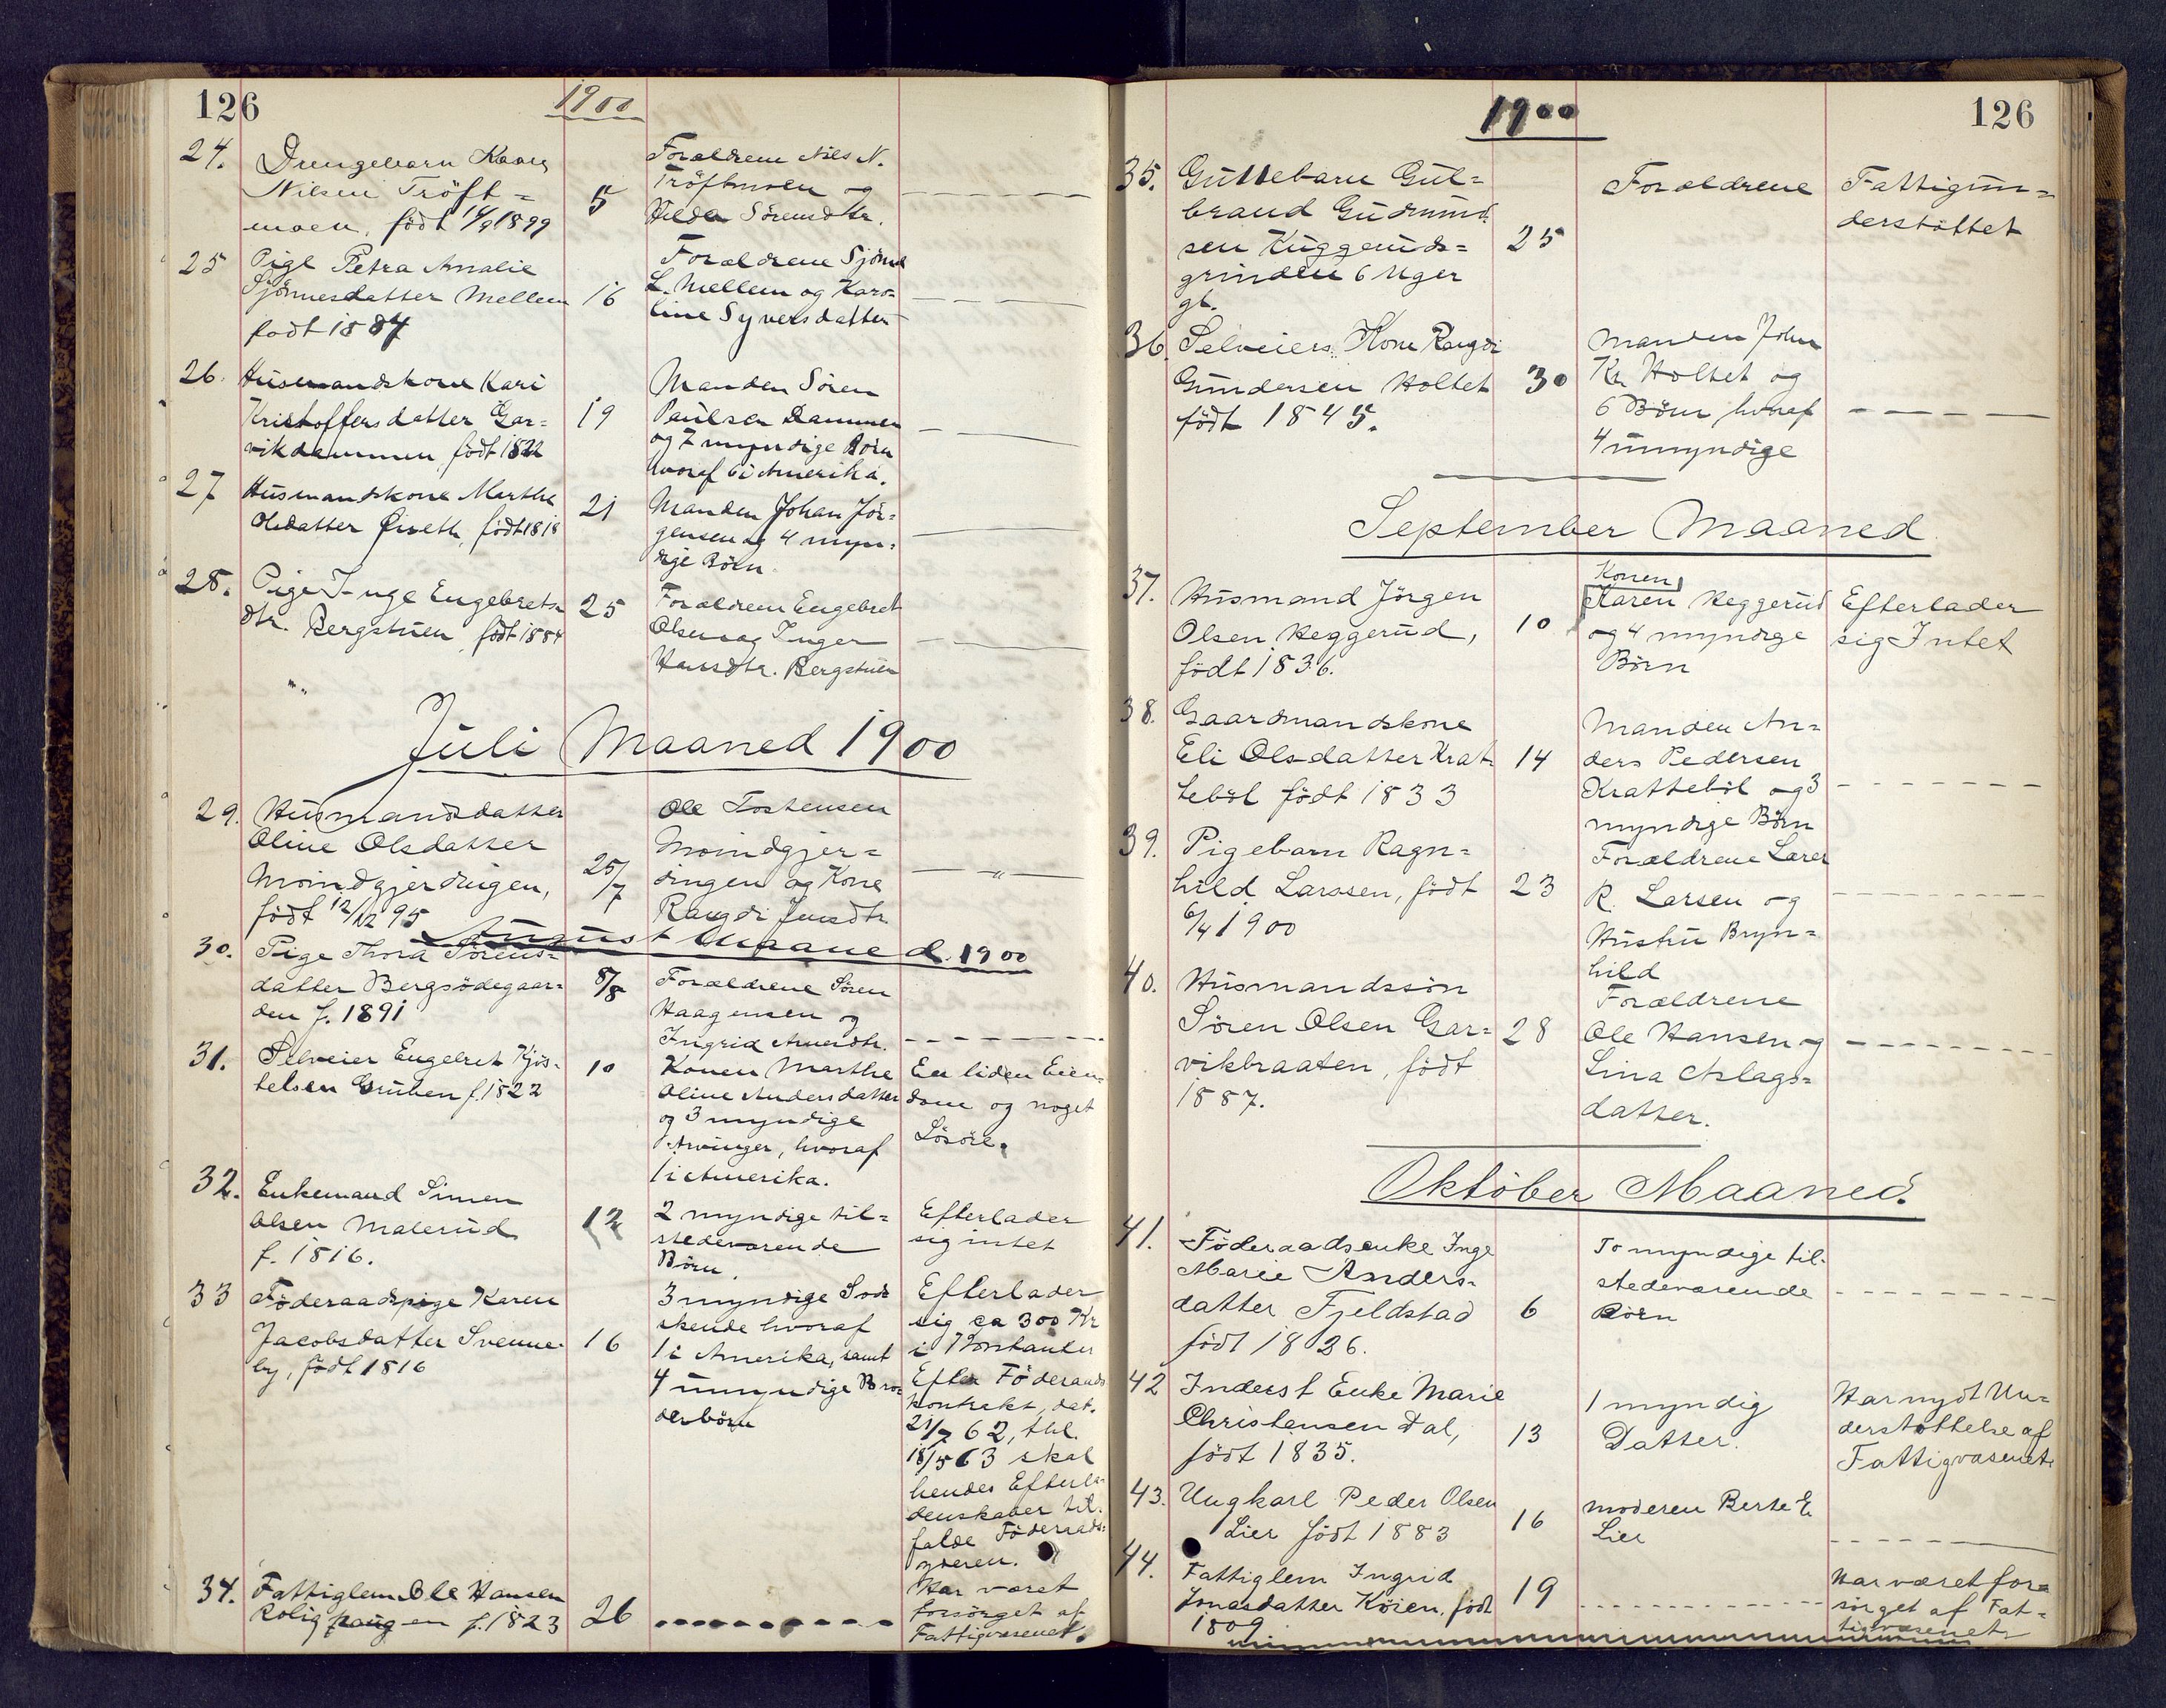 126
1900
24. Drengebarn Kaare
Nilsen Tröft-
moen, född 14/9 1899
5
Forældrene Nils N.
Tröftmoen og
Hilda Sörensdtr.
25 Pige Petra Amalie
Sjönnesdatter Mellem
födt 1884
16
Forældrene Sjönne
L. Mellem og Karo-
line Syversdatter
26. Husmandskone Kari
Kristoffersdatter Gar-
vikdammen, födt 1822
19
Manden Sören
Paulsen Dammen
og 7 myndige Börn
hvoraf 6 i Amerika.
27 Husmandskone Marthe
Olsdatter Öiseth, födt 1818
21
Manden Johan Jör-
gensen og 4 myn-
dige Börn.
28. Pige Inge Engebrets-
dtr. Bergstuen, födt 1884
25
Forældrene Engebret
Olsen og Inger
Hansdtr. Bergstuen
Juli Maaned 1900
29. Husmandsdatter
Oline Olsdatter
Moindgjerdingen,
födt 12/12 95
25/7
Ole Tostensen
Moindgjer-
dingen og Kone
Rangdi Jensdtr
August Maaned. 1900
30. Pige Thora Sörens-
datter Bergsödegaar-
den f. 1891
8/8
Forældrene Sören
Haagensen og
Ingrid Amundtr.
31. Selveier Engebret Kjös-
telsen Gruben f. 1822
10
Konen Marthe
Oline Andersdatter
og 3 myndige
Arvinger, hvoraf
1 i Amerika.
En liden Eien-
dom og noget
Lösöre.
32. Enkemand Simen
Olsen Malerud
f. 1816.
12
2 myndige til-
stedeværende
Börn.
Efterlader
sig intet
33 Föderaadspige Karen
Jacobsdatter Svenne-
by, födt 1816
16
3 myndige Sods
skende hvoraf
1 i Amerika, samt
4 umyndige Bro-
derbörn
Efterlader
sig ca 300 Kr
i Kontanter
Efter Föderaads
kontrakt, dat.
21/7 62, thl.
18/5 63 skal
hendes Efterla-
denskaber til-
falde Föderaads-
yderen.
34. Fattiglem Ole Hansen
Rolighaugen f. 1823
26
Har været
forsörget af
Fattigvæsenet.
1900
126
35. Guttebarn Gul-
brand Gudmund-
sen Kuggeruds-
grinden 6 Uger
gl.
25
Forældrene
Fattigun-
derstöttet
36. Selveiers Kone Rangdi
Gundersen Holtet
födt 1845.
30
Manden John
Kr. Holtet og
6 Börn hvoraf
4 umyndige
September Maaned
37. Husmand Jörgen
Olsen Heggerud,
födt 1836.
10
Konen
Karen Heggerud
og 4 myndige
Börn
Efterlader
sig Intet
38. Gaardmandskone
Eli Olsdatter Krat-
teböl födt 1833
14
Manden An-
ders Pedersen
Kratteböl og 3
myndige Börn
39. Pigebarn Ragn-
hild Larssen, födt
6/4 1900
23
Forældrene Lærer
R. Larsen og
Hustru Bryn-
hild
40. Husmandssön
Sören Olsen Gar-
vikbraaten, födt
1887.
28
Forældrene
Ole Hansen og
Lina Aslags-
datter.
Oktober Maaned.
41. Föderaadsenke Inge
Marie Anders-
datter Fjeldstad
födt 1826.
6
To myndige til-
stedeværende
Börn
42 Inderst Enke Marie
Christensen Dal,
födt 1835.
13
1 myndig
Datter.
Har nydt Un-
derstöttelse af
Fattigvæsenet.
43. Ungkarl Peder Olsen
Lier födt 1883
16
Moderen Berte E.
Lier
44. Fattiglem Ingrid
Jonasdatter Köien, födt
1809
19
Har været for-
sörget af Fat-
tigvæsenet